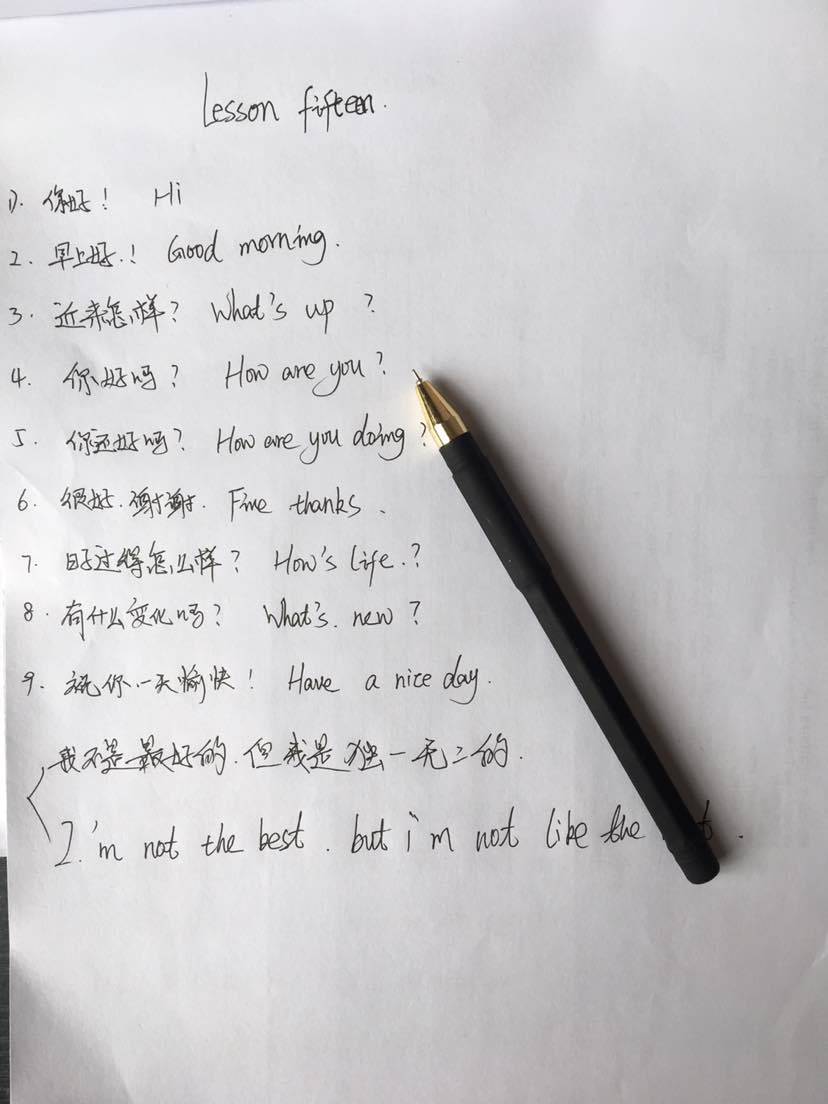 Lesson fifteen.
1). 你好! Hi
2. 早上好.! Good morning.
3. 近来怎样? What's up ?
4. 你好吗? How are you?
5. 你还好吗? How are you doing ?
6. 很好.谢谢. Fine thanks.
7. 日子过得怎么样? How's life.?
8. 有什么变化吗? What's. new?
9. 祝你一天愉快! Have a nice day.
我不是最好的.但我是独一无二的.
I'm not the best. but i'm not like the